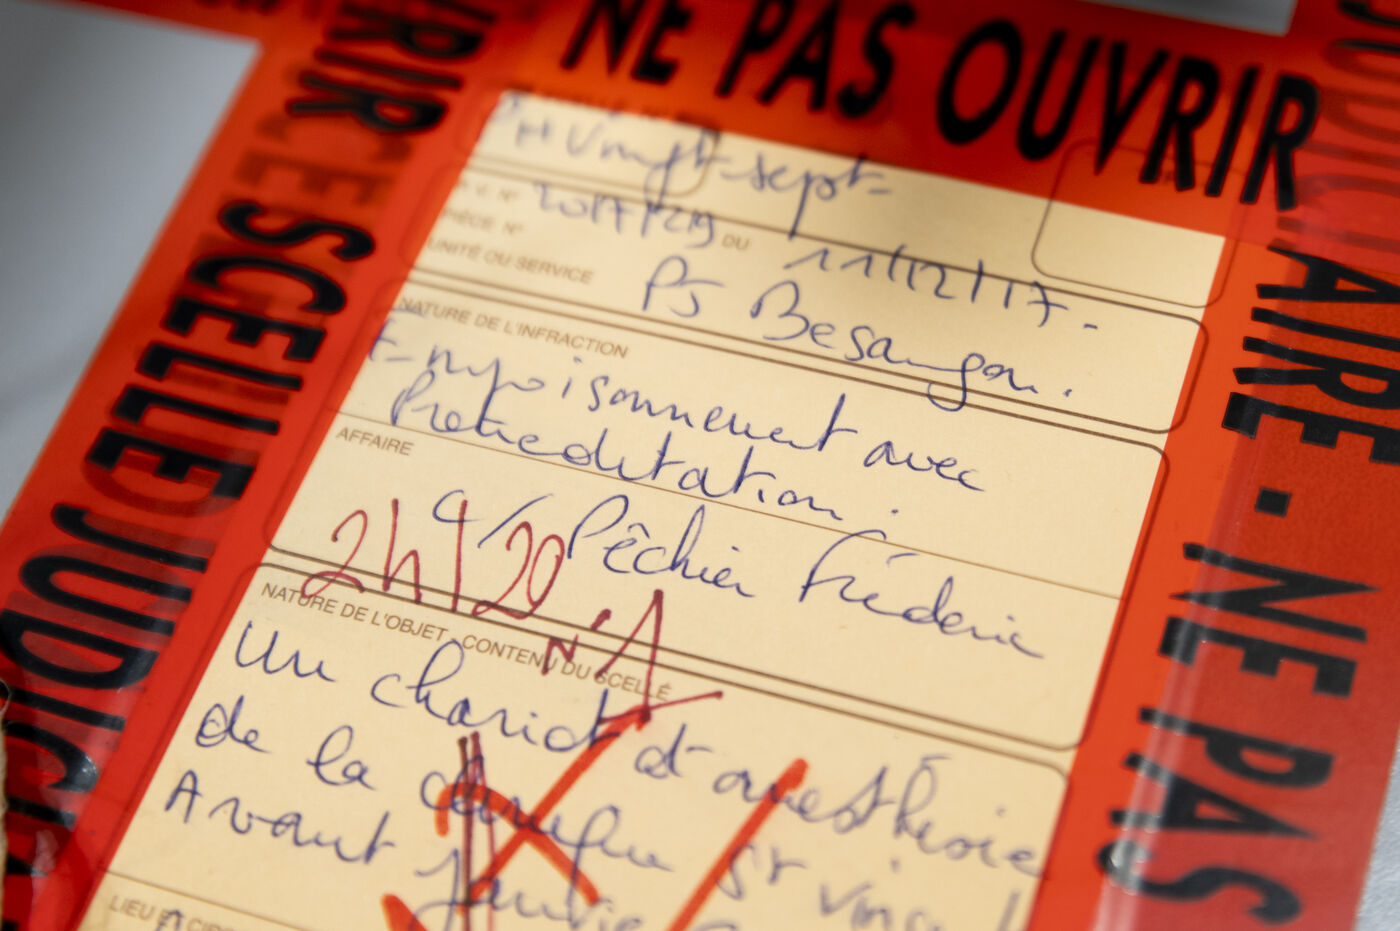 NE PAS OUVRIR
SCELLE JUDICI
AIRE - NE PAS
Vingt-sept-
P.V. N° 2017/219 DU 11/12/17-
PIÈCE N°
UNITÉ OU SERVICE PJ Besançon.
NATURE DE L'INFRACTION
Empoisonnement avec
Préméditation.
AFFAIRE
C/ Pêchier Frédéric
2h/20 N°1
NATURE DE L'OBJET - CONTENU DU SCELLÉ
Un chariot d'anesthésie
de la clinique St Vincent
Avant janvier
LIEU ET CIR